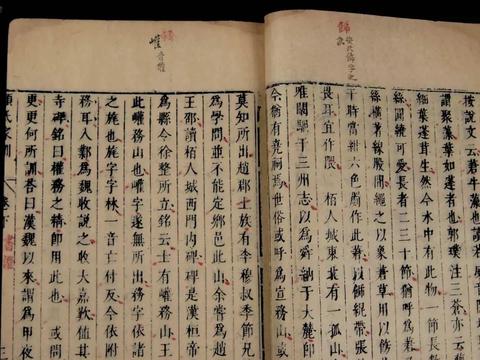 按說文云莙牛藻
謂聚藻葉如蓬者也郭璞注三蒼亦云
細葉蓬茸生然今水中有此物一節長數
絲圓繞可愛長者二三十節猶呼為莙
絲橫著線股間繩之以象莙草用以飾
於時當紺六色罽作此莙以飾緄帶
畏耳宜作隈 栢人城東北有一孤山
唯闞駰十三州志以為舜納於大麓即
今猶有堯祠焉世俗或呼為宣務山
巏音權
莫知所出趙郡士族有李穆叔季節兄
為學問並不能定鄉邑此山余嘗為趙
王邵讀栢人城西門內碑碑是漢桓帝
為縣令徐整所立銘云士有巏務山王
此巏務山也巏字遂無所出務字依諸
之旄也旄字字林一音亡付反今依附
務耳入鄴為魏收說之收大嘉歎值其
寺碑銘曰權務之精即用此也 或問
更更何所訓荅曰漢魏以來謂為甲夜
顏氏家訓 卷下 書證